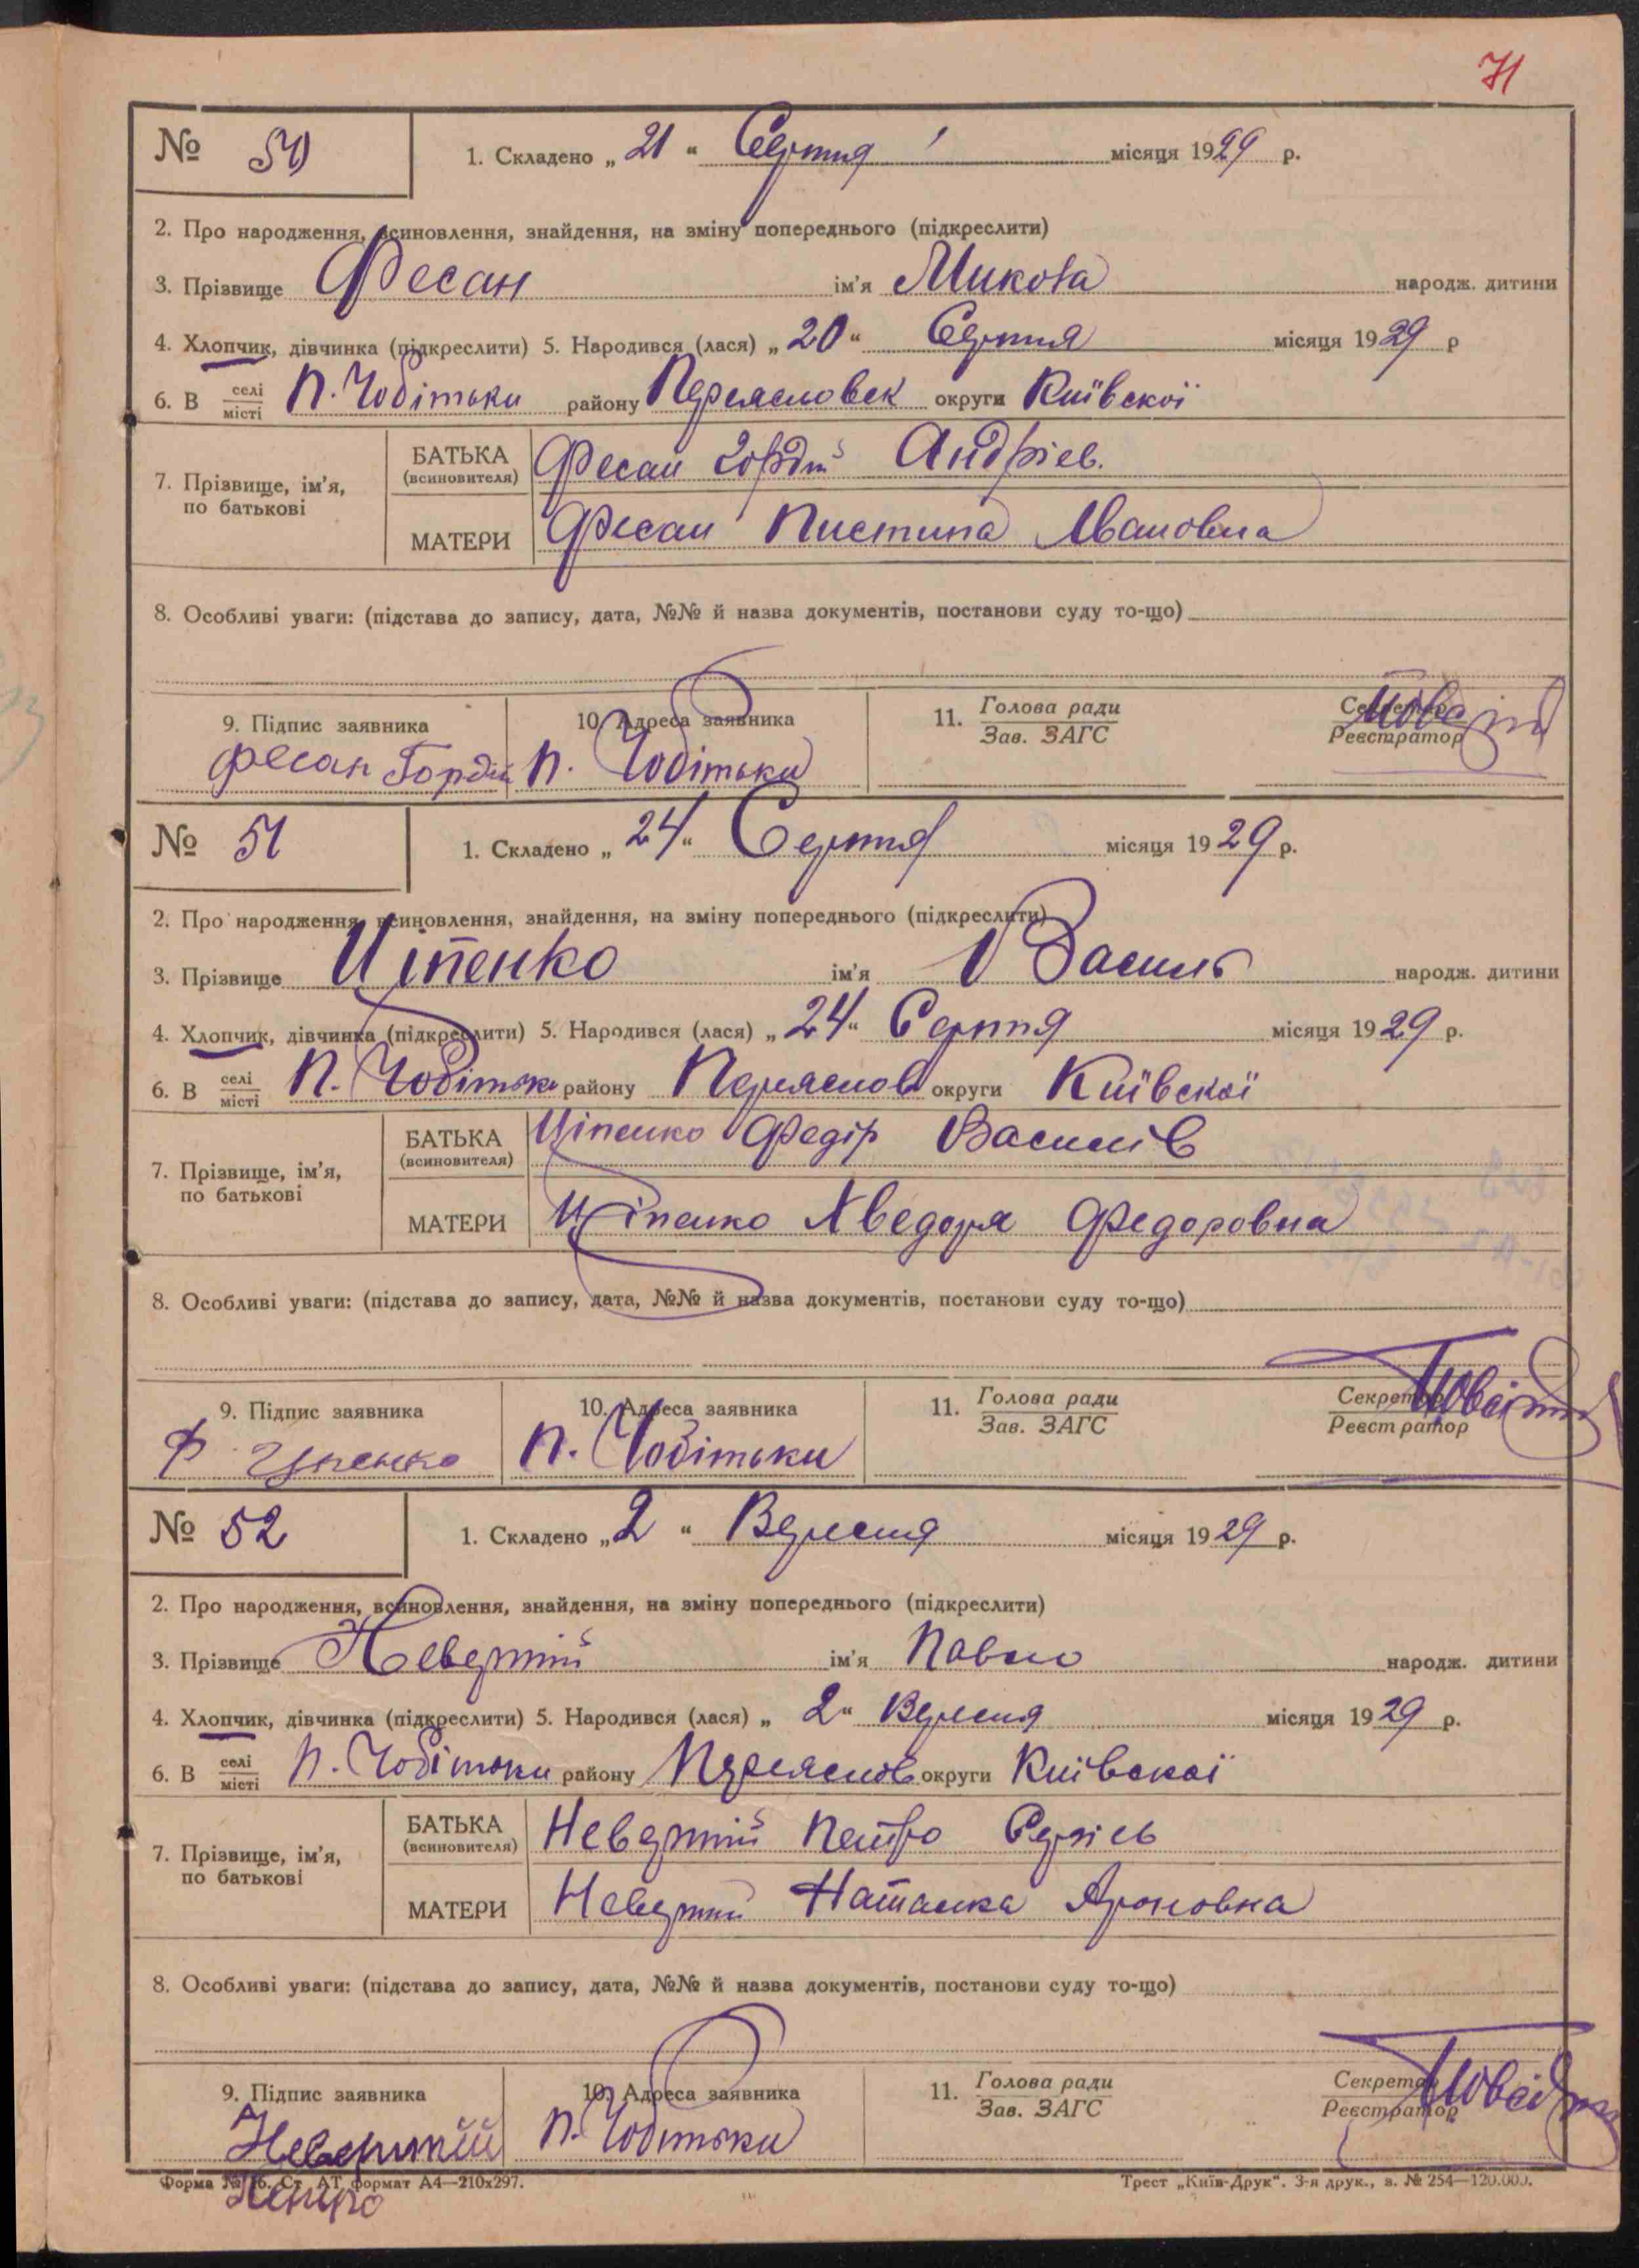 71
№ 50 1. Складено „ 21 “ Серпня місяця 1929 р.
2. Про народження, всиновлення, знайдення, на зміну попереднього (підкреслити)
3. Прізвище Фесан ім'я Микола народж. дитини
4. Хлопчик, дівчинка (підкреслити) 5. Народився (лася) „ 20 “ Серпня місяця 1929 р
6. В селі місті П. Чобітьки району Переясловск округи Київскої
7. Прізвище, ім'я, по батькові
БАТЬКА (всиновителя) Фесан Гордій Андріев.
МАТЕРИ Фесан Пистина Ивановна
8. Особливі уваги: (підстава до запису, дата, №№ й назва документів, постанови суду то-що)
9. Підпис заявника 10. Адреса заявника 11. Голова ради Зав. ЗАГС Секретар Реєстратор
Фесан Гордій П. Чобітьки
№ 51 1. Складено „ 24 “ Серпня місяця 1929 р.
2. Про народження, всиновлення, знайдення, на зміну попереднього (підкреслити)
3. Прізвище Ціпенко ім'я Василь народж. дитини
4. Хлопчик, дівчинка (підкреслити) 5. Народився (лася) „ 24 “ Серпня місяця 1929 р.
6. В селі місті П. Чобітьки району Переяслов округи Київскої
7. Прізвище, ім'я, по батькові
БАТЬКА (всиновителя) Ціпенко Федір Василів
МАТЕРИ Ціпенко Хведоря Федоровна
8. Особливі уваги: (підстава до запису, дата, №№ й назва документів, постанови суду то-що)
9. Підпис заявника 10. Адреса заявника 11. Голова ради Зав. ЗАГС Секретар Реєстратор
Ф Ципенко П. Чобітьки
№ 52 1. Складено „ 2 “ Вересня місяця 1929 р.
2. Про народження, всиновлення, знайдення, на зміну попереднього (підкреслити)
3. Прізвище Невертій ім'я Павло народж. дитини
4. Хлопчик, дівчинка (підкреслити) 5. Народився (лася) „ 2 “ Вересня місяця 1929 р.
6. В селі місті П. Чобітьки району Переяслов округи Київскої
7. Прізвище, ім'я, по батькові
БАТЬКА (всиновителя) Невертій Петро Сергіев
МАТЕРИ Невертий Наталка Ароновна
8. Особливі уваги: (підстава до запису, дата, №№ й назва документів, постанови суду то-що)
9. Підпис заявника 10. Адреса заявника 11. Голова ради Зав. ЗАГС Секретар Реєстратор
Невертій П. Чобітьки
Петро
Форма № 16. Ст. АТ формат А4—210х297. Трест „Київ-Друк“. 3-я друк., з. № 254—120.000.